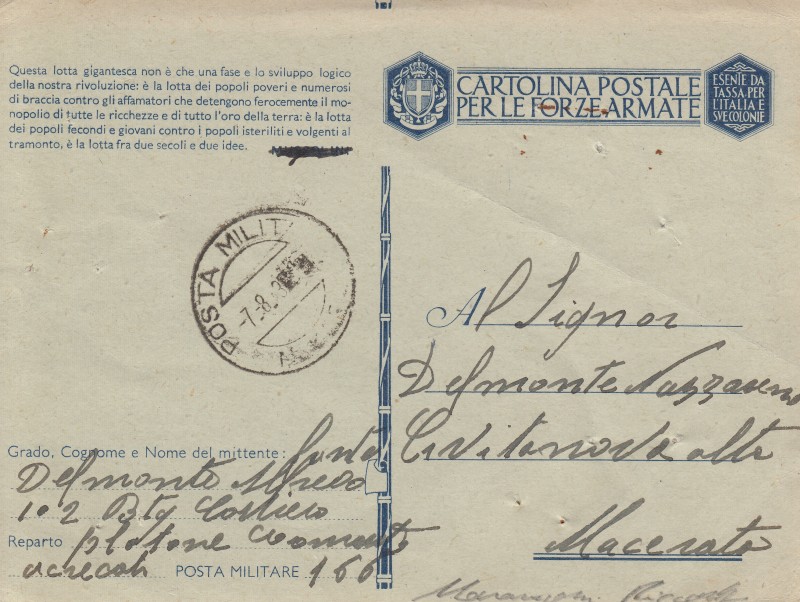 Questa lotta gigantesca non è che una fase e lo sviluppo logico
della nostra rivoluzione: è la lotta dei popoli poveri e numerosi
di braccia contro gli affamatori che detengono ferocemente il mo-
nopolio di tutte le ricchezze e di tutto l'oro della terra: è la lotta
dei popoli fecondi e giovani contro i popoli isteriliti e volgenti al
tramonto, è la lotta fra due secoli e due idee.
CARTOLINA POSTALE
PER LE FORZE ARMATE
ESENTE DA
TASSA·PER
L'ITALIA E
SVE COLONIE
POSTA MILIT
-7.-8.
Al Signor
Delmonte Nazzareno
Civitanova alta
Macerata
Grado, Cognome e Nome del mittente:
Delmonte Alfredo
102 Btg Costiero
Reparto plotone Comando
POSTA MILITARE 166